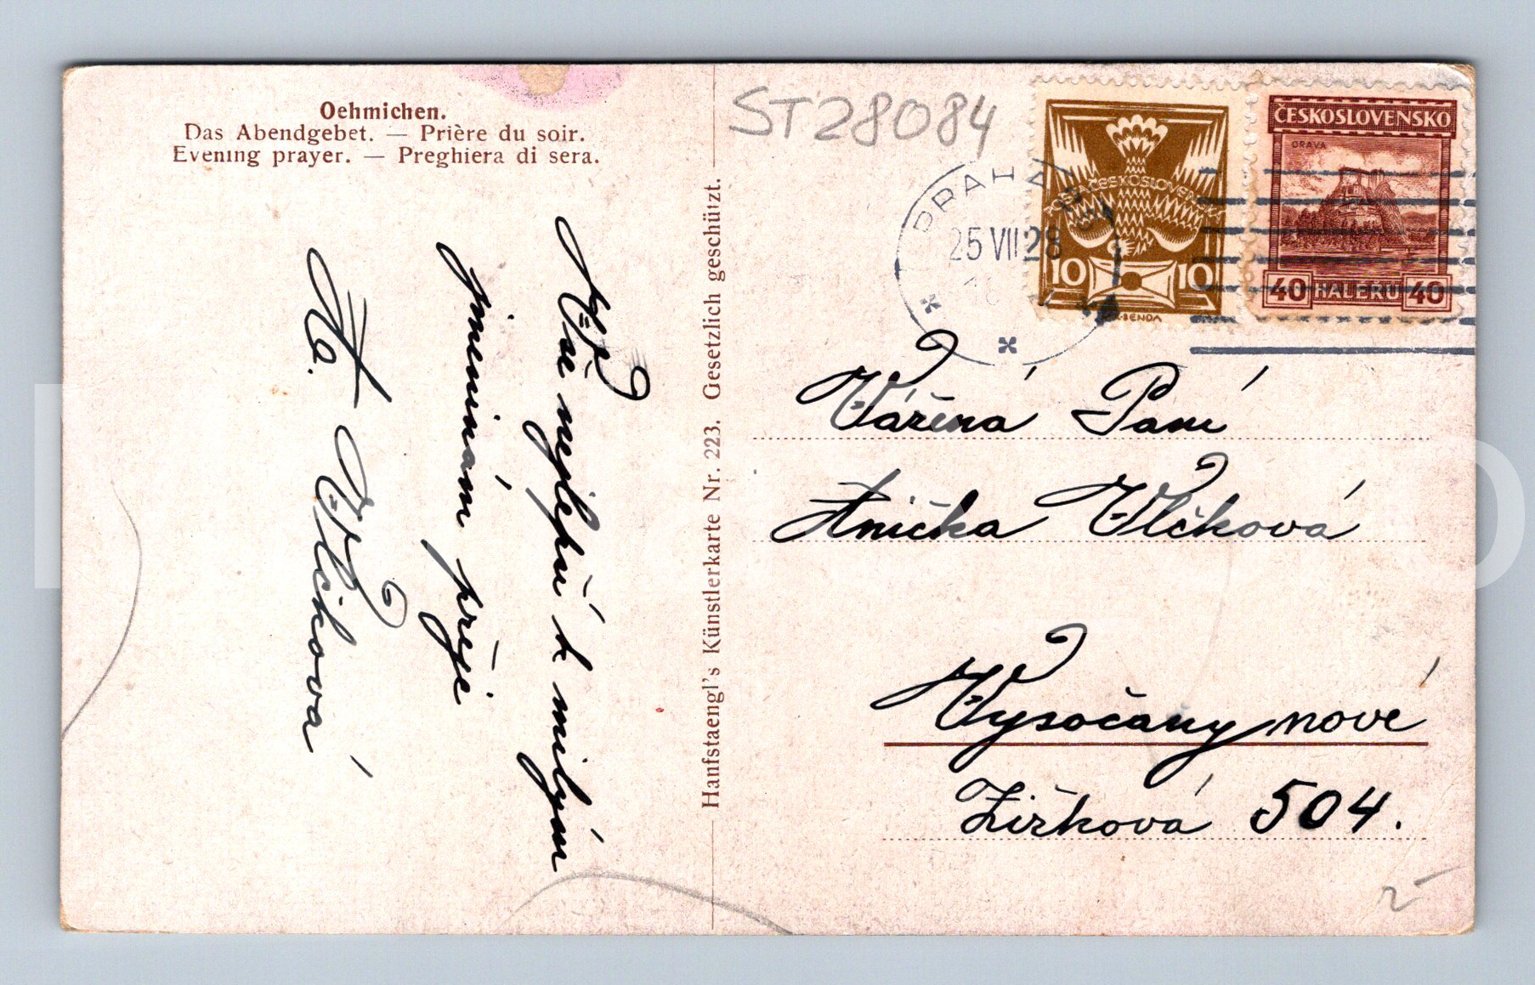 Oehmichen.
Das Abendgebet. — Prière du soir.
Evening prayer. — Preghiera di sera.
ST28084
PRAHA
25 VII 28
ČESKOSLOVENSKO
10 10
BENDA
ČESKOSLOVENSKO
ORAVA
40 HALERU 40
Vše nejlepší k milým
jmeninám přeje
A. Vlčková
Hanfstaengl's Künstlerkarte Nr. 223. Gesetzlich geschützt.
Vážená Paní
Anička Vlčková
Vysočany nové
Žižková 504.